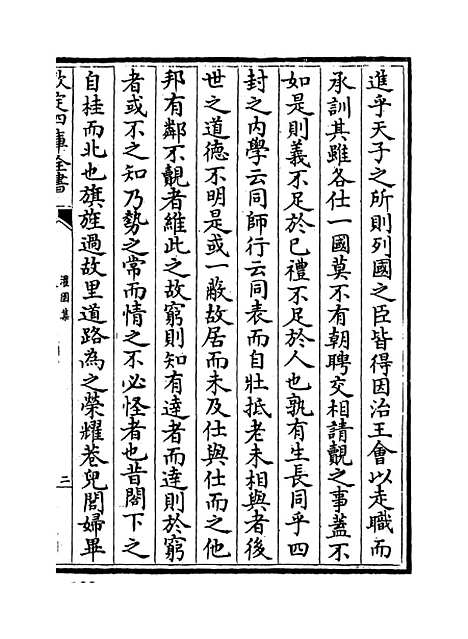 進乎天子之所則列國之臣皆得因治王會以走職而
承訓其雖各仕一國莫不有朝聘交相請覿之事蓋不
如是則義不足於已禮不足於人也孰有生長同乎四
封之内學云同師行云同表而自壯抵老未相與者後
世之道德不明是或一蔽故居而未及仕與仕而之他
邦有鄰不覿者維此之故窮則知有達者而達則於窮
者或不之知乃勢之常而情之不必怪者也昔閤下之
自桂而北也旗旌過故里道路為之榮耀巷兒閭婦畢
欽定四庫全書
灌園集
三